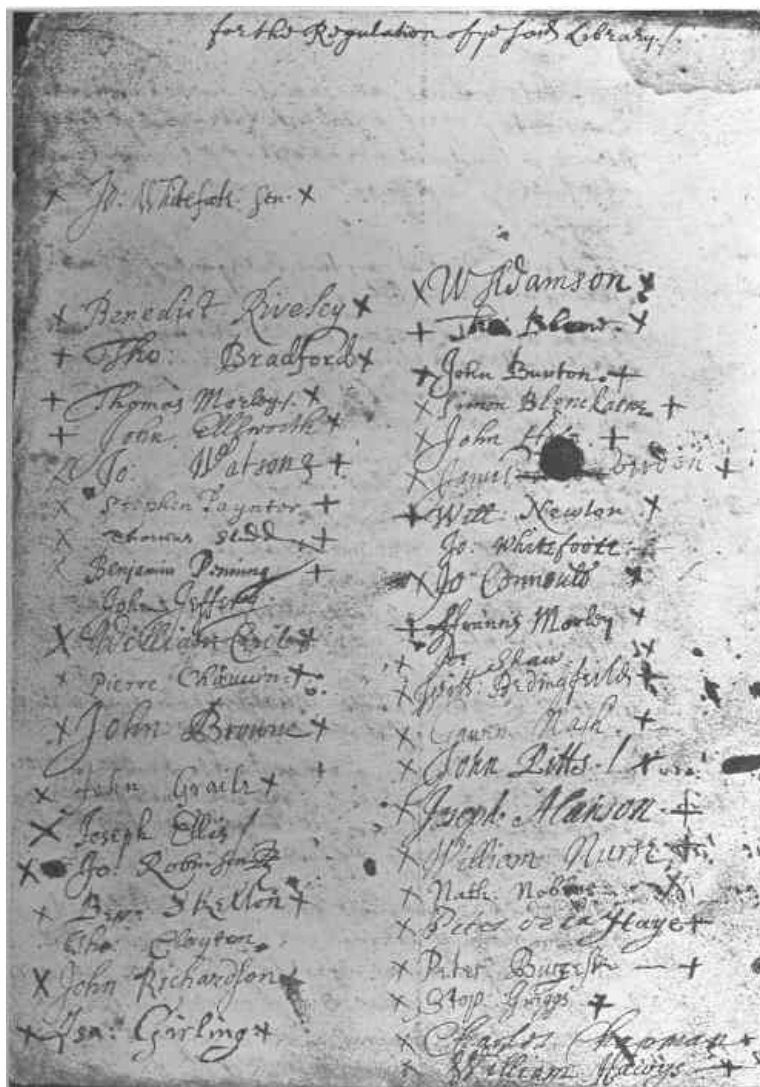 for the Regulation of ye said Library
Jo: Whitefoote. sen.
Benedict Rively
Tho: Bradford
Thomas Morley
John Ellsworth
Jo: Watson
Stephen Paynter
Thomas
Benjamin Penning
John Jeffery
William
Pierre Chauvin
John Browne
John Graile
Joseph Ellis
Jo: Robinson
Ben: Skelton
Tho: Clayton
John Richardson
Isa: Girling
W Adamson
Tho
John Burton
Simon
John
Will: Newton
Jo: Whitefoote
Jo Connould
Francis Morley
Jo: Shaw
Will: Bedingfeild
Gawen Nash
John Pitts
Joseph Alanson
William Nurse
Nath:
Peter de la Haye
Peter Burgess
Stop Griggs
Charles Chapman
William Hawys